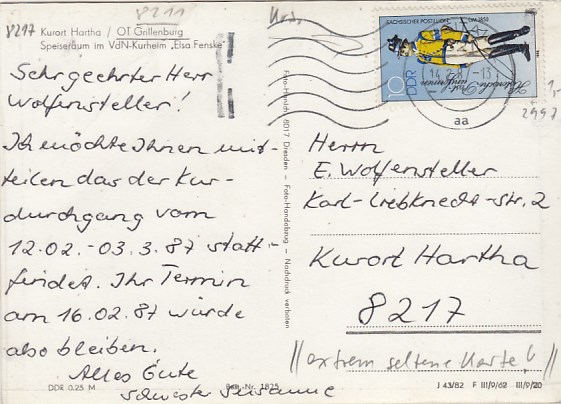 8211
8217 Kurort Hartha / OT Grillenburg
Speiseraum im VdN-Kurheim „Elsa Fenske"
Sehr geehrter Herr
Wolfensteller!
Ich möchte Ihnen mit-
teilen das der Kur-
durchgang vom
12.02.-03.3.87 statt-
findet. Ihr Termin
am 16.02.87 würde
also bleiben.
Alles Gute
Schwester Susanne
DDR 0.25 M
Best.-Nr. 1825
Foto-Handel 8017 Dresden – Foto-Handabzug – Nachdruck verboten
SÄCHSISCHER POSTILLION UM 1850
Historische Post-
uniformen
10 DDR
aa
1,-
2997
Herrn
E. Wolfensteller
Karl-Liebknecht-Str. 2
Kurort Hartha
8217
//extrem seltene Karte!//
J 43/82 F III/9/62 III/9/20